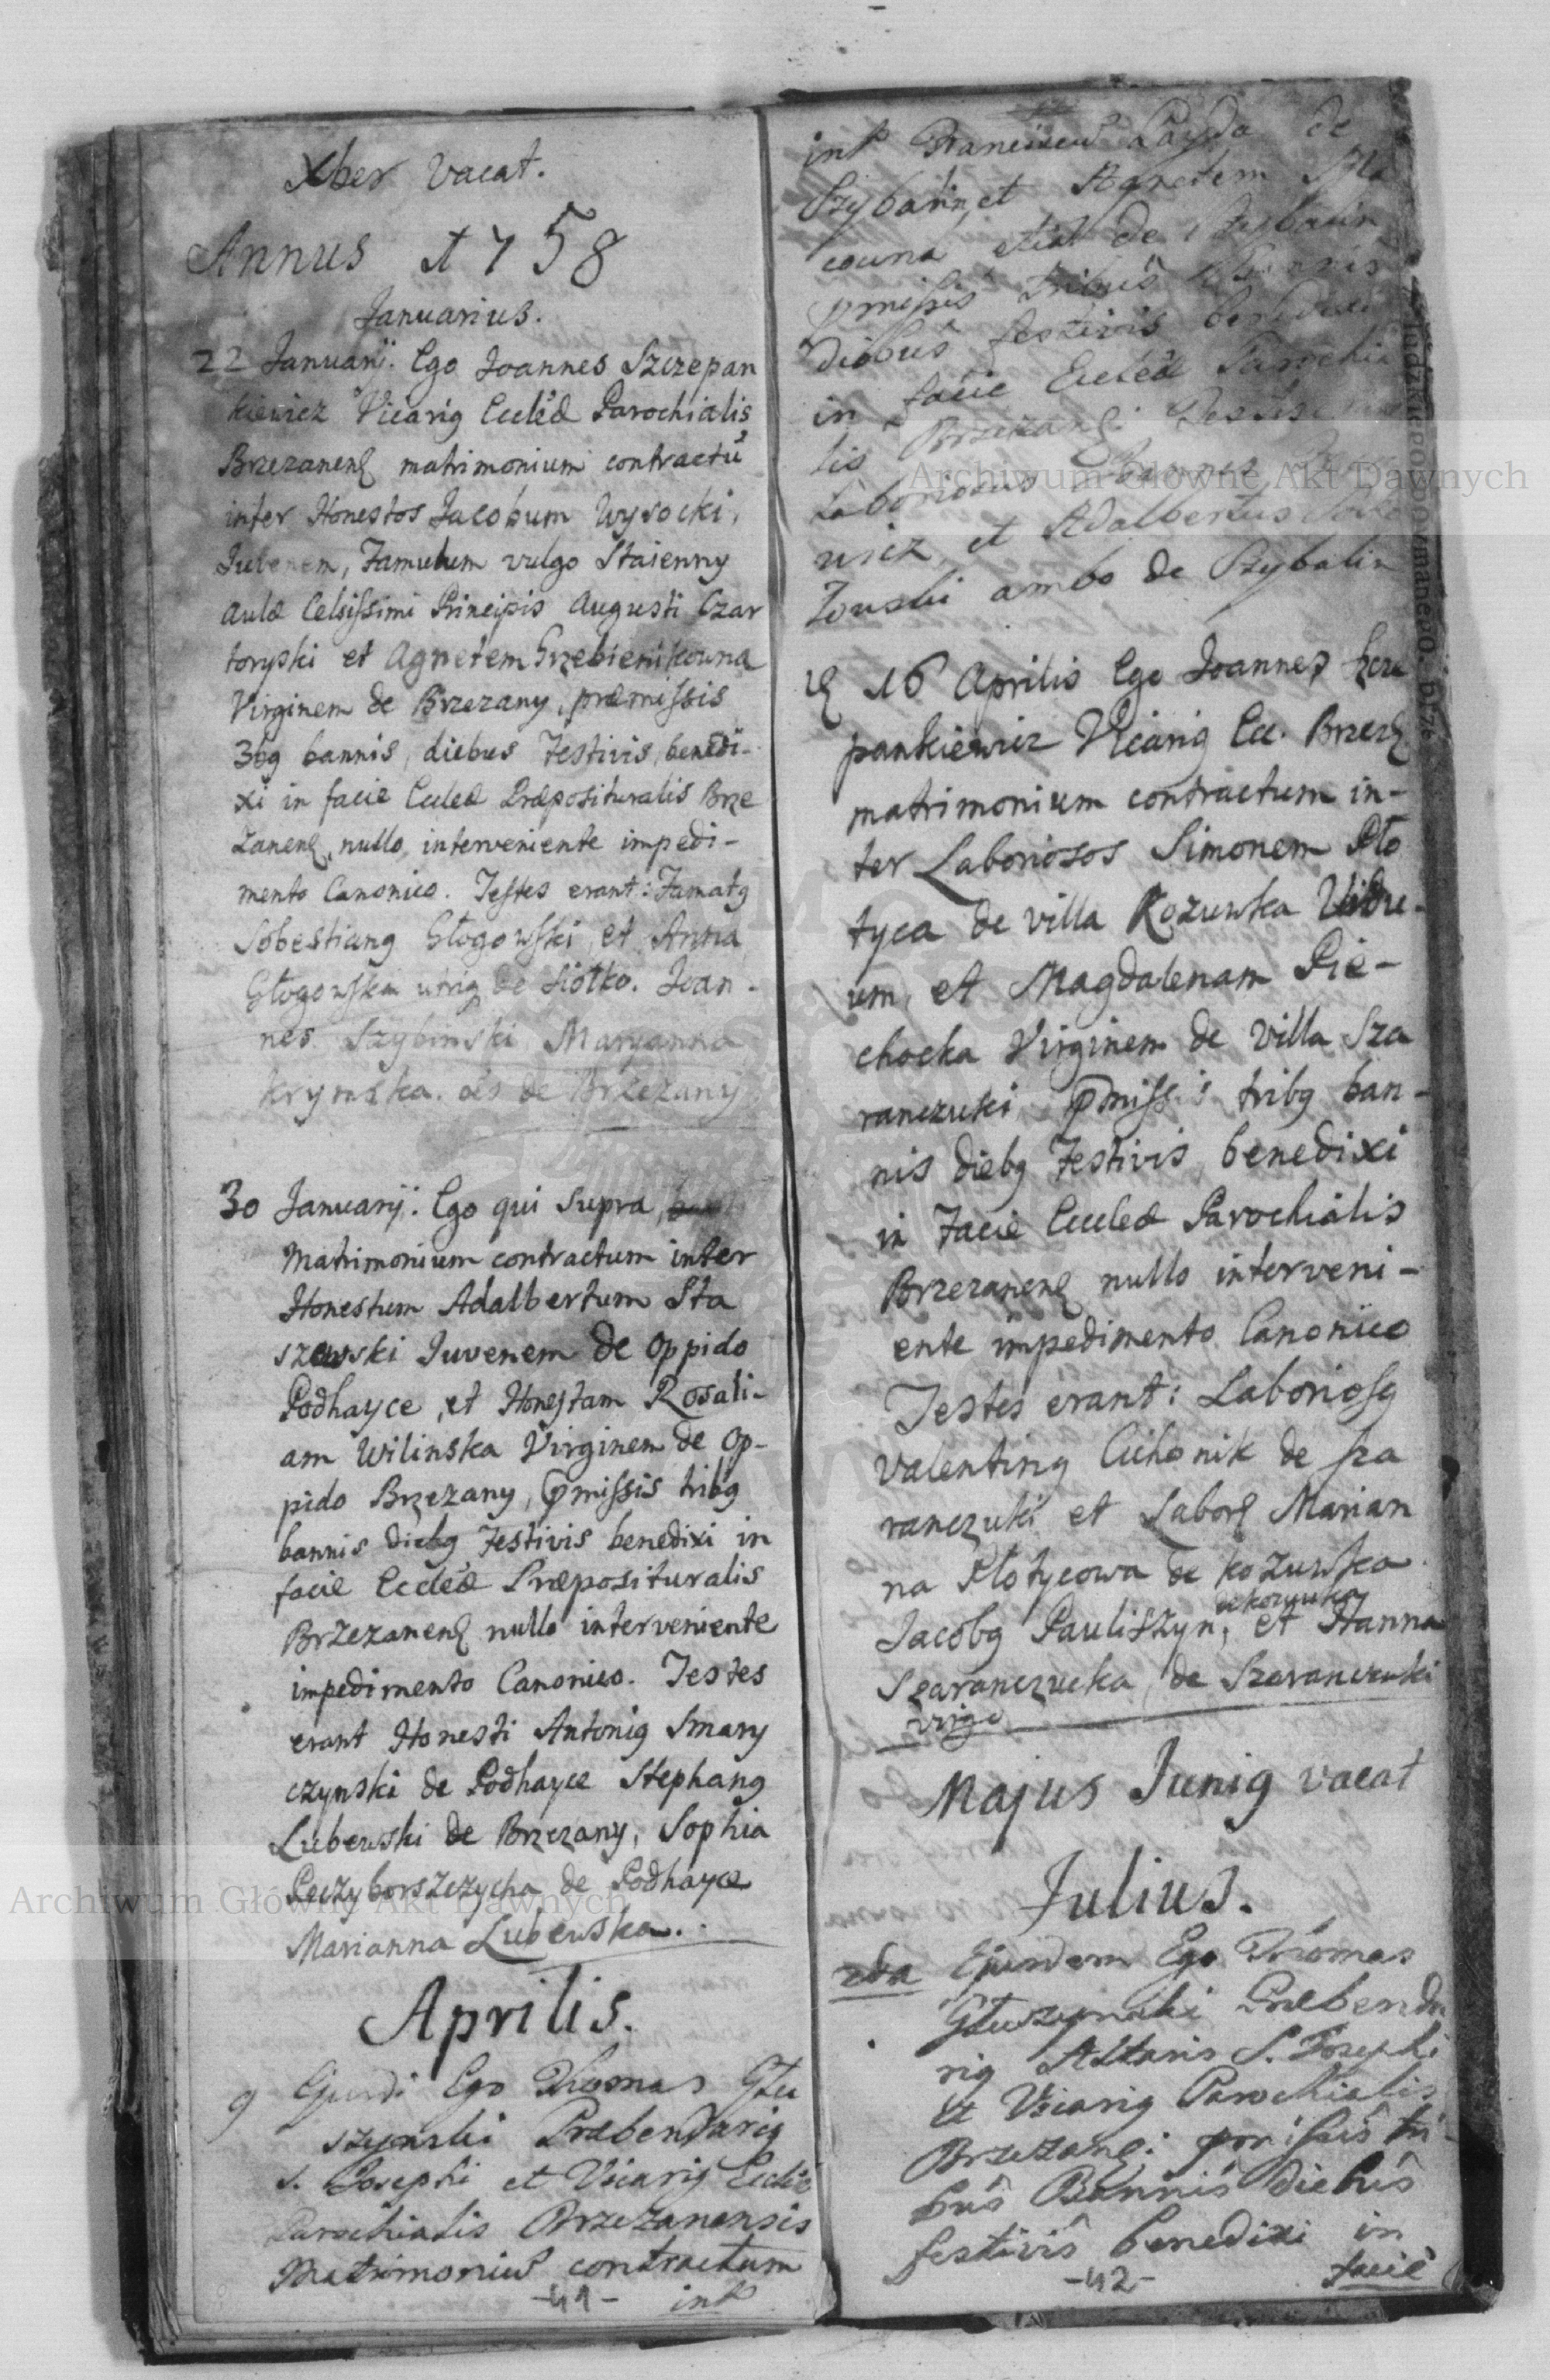 Xber vacat.
Annus 1758
Januarius.
22 Januarij. Ego Joannes Szczepan
kiewicz Vicarig Eccleæ Parochialis
Brzezanens matrimonium contractū
inter Honestos Jacobum Wysocki,
Juvenem, Famulum vulgo Staienny
aulæ Celsissimi Principis Augusti Czar
toryski et Agnetem Grzebienikowna
Virginem de Brzezany, præmissis
3bg bannis, diebus Festivis, benedi-
xi in facie Eccleæ Præposituralis Brze
zanens, nullo interveniente impedi-
mento Canonico. Testes erant: Famatg
Sobestiang Głogowski, et Anna
Głogowska de Siołko. Joan-
nes Szybinski Maryanna
Krymska. de Brzezany
30 Januarij. Ego qui supra,
Matrimonium contractum inter
Honestum Adalbertum Sta
szewski Juvenem de oppido
Podhayce, et Honestam Rosali-
am Wilinska Virginem de op-
pido Brzezany, pmissis tribg
bannis diebg Festivis benedixi in
facie Eccleæ Præposituralis
Brzezanens nullo interveniente
impedimento Canonico. Testes
erant Honesti Antonig Smary
czynski de Podhayce Stephang
Lubewski de Brzezany, Sophia
Peczyborszczycha de Podhayce
Marianna Lubewska.
Aprilis.
9 Ejusdi Ego Thomas Głu
szynski Præbendarig
S. Josephi et Vicarig Ecclæ
Parochialis Brzezanensis
Matrimoniū contractum
-41- int
int Franciscū Łayda de
Szybalin, et Agnetem
cowna etiā de Szybalin
pmissis tribūs Bannis
diebus festivis benedixi
in facie Eccleæ Parochia
lis Brzezans: Testes
Laboriosus
wicz, et Adalbertus
Zouski ambo de Szybalin
16 Aprilis Ego Joannes Szcze
pankiewicz Vicarig Ecc. Brzezs
matrimonium contractum in-
ter Laboriosos Simonem Pło
tyca de villa Kozuwka Vidu-
um, et Magdalenam Pie-
chocka Virginem de villa Sza
ranczuki, pmissis tribg ban-
nis diebg Festivis, benedixi
in Facie Eccleæ Parochialis
Brzezanens nullo interveni-
ente impedimento Canonico
Testes erant: Laboriosg
Valenting Cichonik de sza
ranczuki et Labors Marian
na Płotycowa de Kozuwka
de kozuwka
Jacobg Pauliszyn, et Hanna
Szaranczucka, de Szaranczuki
virgo
Majus Junig vacat
Julius.
2da Ejusdem Ego Thomas
Głuszynski Præbenda
rig Altaris S. Josephi
et Vicarig Parochialis
Brzezans: pmissis tri
bus Bannis diebus
festivis benedixi in
-42- facie
Archiwum Główne Akt Dawnych
Archiwum Główne Akt Dawnych